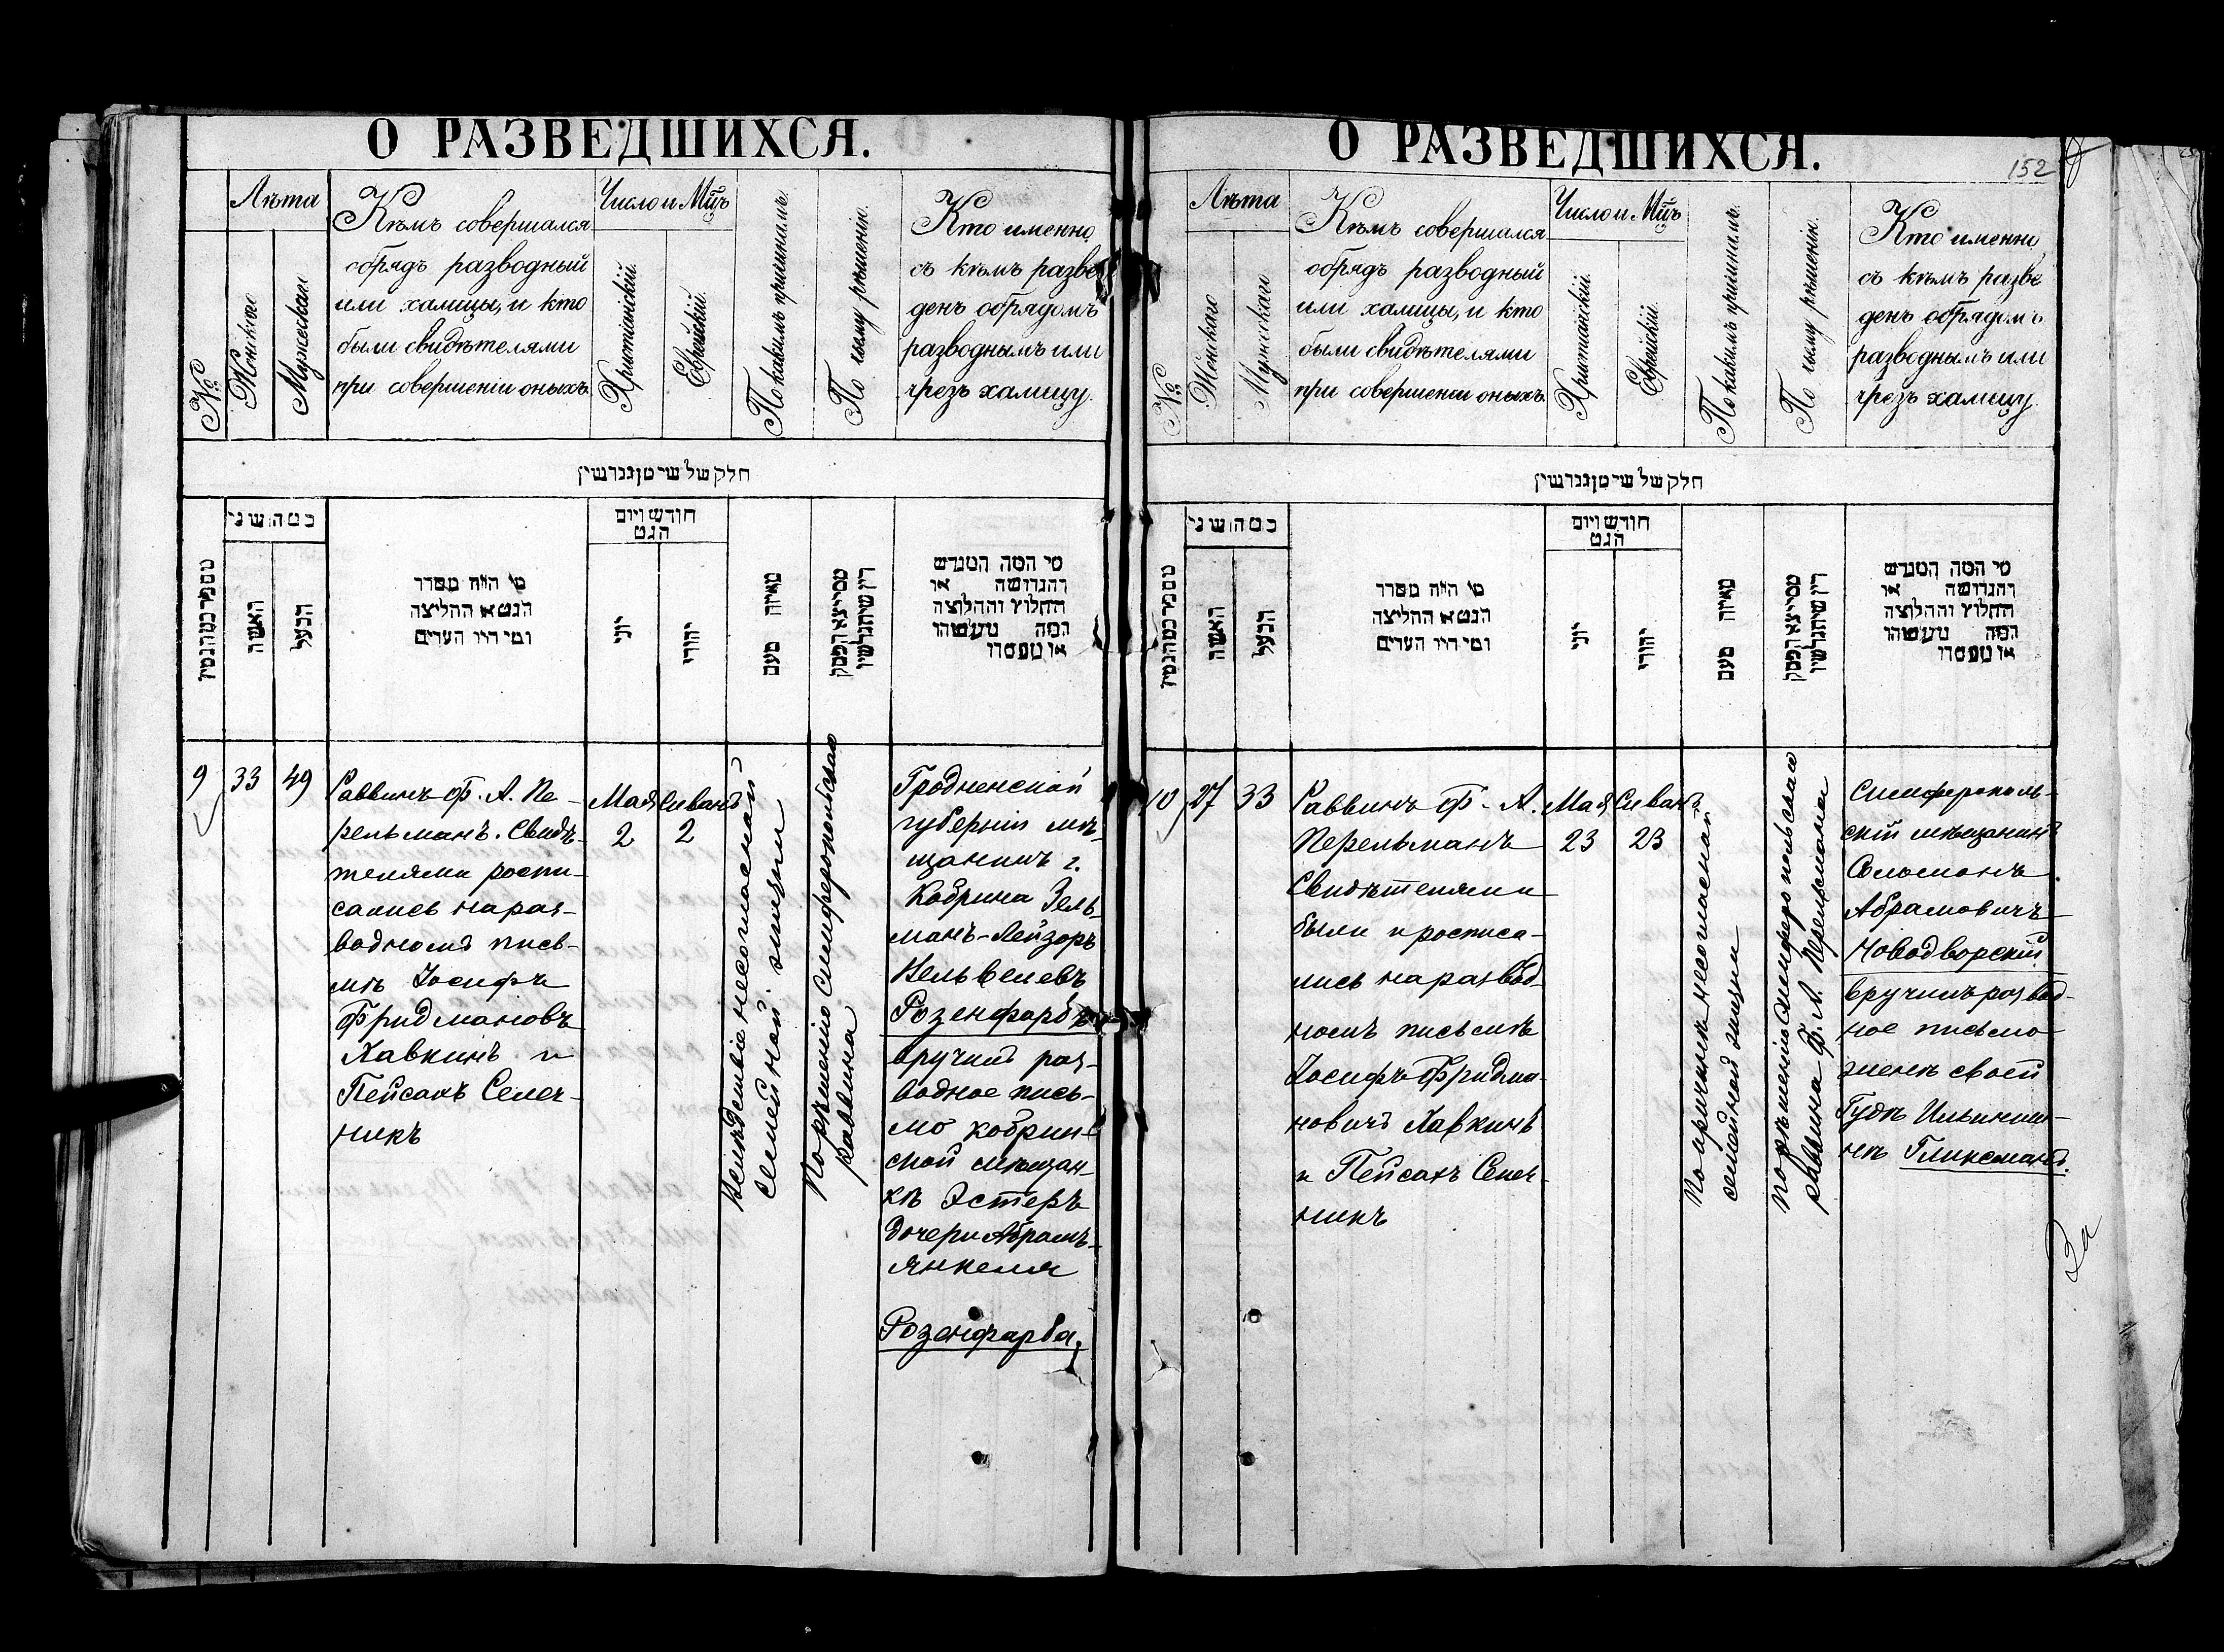 О РАЗВЕДШИХСЯ.
№
Лѣта
Женскаго
Мужескаго
Кѣмъ совершался
обрядъ разводный
или халицы, и кто
были свидѣтелями
при совершеніи оныхъ.
Число и Мц̃ъ
Христіанскій.
Еврейскій.
По какимъ причинамъ.
По чьему рѣшенію.
Кто именно
съ кѣмъ разве
денъ обрядомъ
разводнымъ или
чрезъ халицу.
חלק של שי טן גגרשין
כמה שני
האשה
הבעל
מי היה מסדר
הגט או החליצה
ומי היו העדים
חודש ויום
הגט
יוני
יהודי
מאיזה טעם
מי המה המגרש
והגרושה או
החלוץ והחלוצה
המה מעשהו
או מעמדו
9
33
49
Раввинъ Ф. А. Пе-
рельманъ. Свидѣ-
телями роспи-
сались на раз-
водномъ пись-
мѣ Іосифъ
Фридмановъ
Хавкинъ и
Пейсахъ Селеч-
никъ
Мая
2
Сиванъ
2
Вслѣдствіе несогласной
семейной жизни
По рѣшенію Симферопольскаго
раввина
Гродненской
губерніи мѣ-
щанинъ г.
Кобрина Зель-
манъ-Лейзоръ
Вельвелевъ
Розенфарбъ
вручилъ раз-
водное пись-
мо кобрин-
ской мѣщан-
кѣ Эстеръ
дочери Абрамъ-
Янкеля
Розенфарба.
О РАЗВЕДШИХСЯ.
152
№
Лѣта
Женскаго
Мужескаго
Кѣмъ совершался
обрядъ разводный
или халицы, и кто
были свидѣтелями
при совершеніи оныхъ.
Число и Мц̃ъ
Христіанскій.
Еврейскій.
По какимъ причинамъ.
По чьему рѣшенію.
Кто именно
съ кѣмъ разве
денъ обрядомъ
разводнымъ или
чрезъ халицу.
חלק של שי טן גגרשין
כמה שני
האשה
הבעל
מי היה מסדר
הגט או החליצה
ומי היו העדים
חודש ויום
הגט
יוני
יהודי
מאיזה טעם
מי המה המגרש
והגרושה או
החלוץ והחלוצה
המה מעשהו
או מעמדו
10
27
33
Раввинъ Ф. А.
Перельманъ
Свидѣтелями
были и росписа-
лись на развод-
номъ письмѣ
Іосифъ Фридма-
новичъ Хавкинъ
и Пейсахъ Селеч-
никъ
Мая
23
Сиванъ
23
По причинѣ несогласной
семейной жизни
По рѣшенію Симферопольскаго
раввина Ф. А. Перельмана
Симферополь-
скій мѣщанинъ
Соломонъ
Абрамовичъ
Новодворскій
вручилъ развод-
ное письмо
женѣ своей
Гудѣ Ильинич-
нѣ Гликсманъ.
За